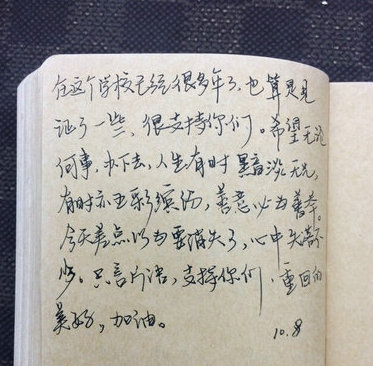 在这个学校已经很多年了，也算是见
证了一些，很支持你们。希望无论
何事，办下去，人生有时黯淡无光，
有时亦五彩缤纷，善意必为善举。
今天差点以为要消失了，心中失落不
少。只言片语，支持你们，重回的
美好，加油。
10.8